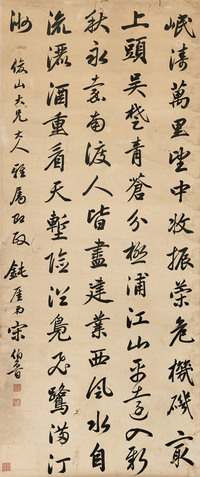 岷濤萬里望中收振策危機磯最
上頭吳楚青蒼分極浦江山平遠入新
秋永嘉南渡人皆盡建業西風水自
流灑酒重看天塹險浴鳧飛鷺滿汀
洲 俊山大兄大人雅屬即政 鈍弟宋伯魯